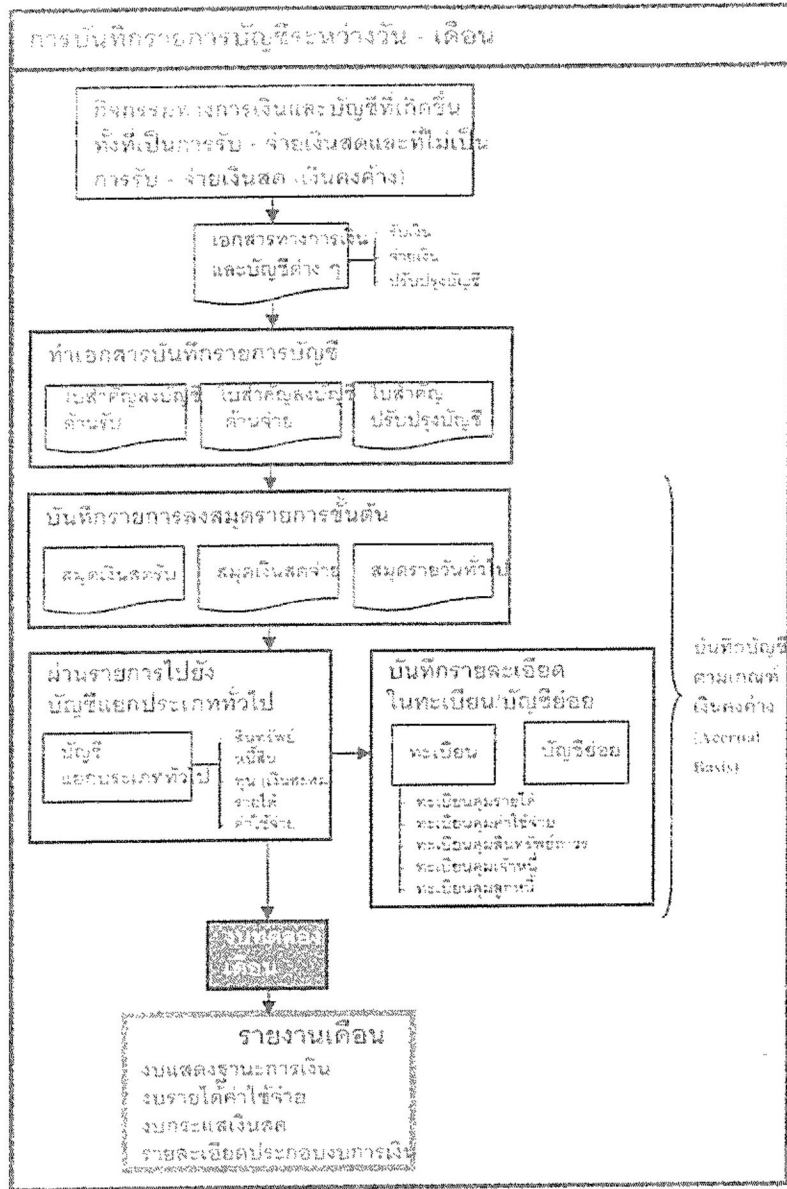 การบันทึกรายการบัญชีระหว่างวัน - เดือน
กิจกรรมทางการเงินและบัญชีที่เกิดขึ้น
ทั้งที่เป็นการรับ - จ่ายเงินสดและที่ไม่เป็น
การรับ - จ่ายเงินสด (เงินคงค้าง)
เอกสารทางการเงิน
และบัญชีต่าง ๆ
รับเงิน
จ่ายเงิน
ปรับปรุงบัญชี
ทำเอกสารบันทึกรายการบัญชี
ใบสำคัญลงบัญชี
ด้านรับ
ใบสำคัญลงบัญชี
ด้านจ่าย
ใบสำคัญ
ปรับปรุงบัญชี
บันทึกรายการลงสมุดรายการขั้นต้น
สมุดเงินสดรับ
สมุดเงินสดจ่าย
สมุดรายวันทั่วไป
ผ่านรายการไปยัง
บัญชีแยกประเภททั่วไป
บัญชี
แยกประเภททั่วไป
สินทรัพย์
หนี้สิน
ทุน (เงินสะสม
รายได้
ค่าใช้จ่าย
บันทึกรายละเอียด
ในทะเบียน/บัญชีย่อย
ทะเบียน
บัญชีย่อย
- ทะเบียนคุมรายได้
- ทะเบียนคุมค่าใช้จ่าย
- ทะเบียนคุมสินทรัพย์ถาวร
- ทะเบียนคุมเจ้าหนี้
- ทะเบียนคุมลูกหนี้
บันทึกบัญชี
ตามเกณฑ์
เงินคงค้าง
(Accrual
Basis)
งบทดลอง
เดือน
รายงานเดือน
งบแสดงฐานะการเงิน
งบรายได้ค่าใช้จ่าย
งบกระแสเงินสด
รายละเอียดประกอบงบการเงิน